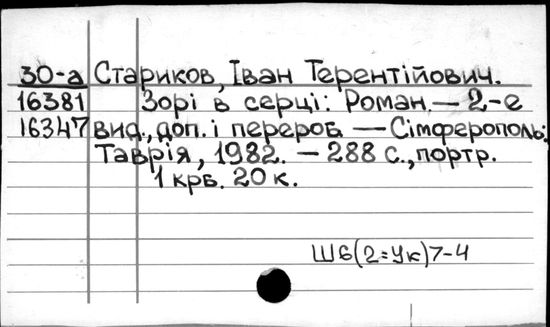 30-а Стариков, Іван Терентійович.
16381 Зорі в серці: Роман. — 2-е
16347 вид., доп. і перероб. — Сімферополь:
Таврія, 1982. — 288 с., портр.
1 крб. 20 к.
Ш6(2=Ук)7-4